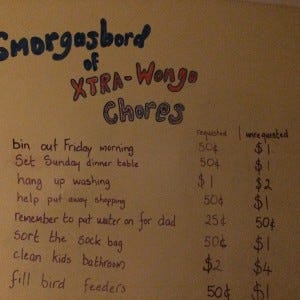 Smorgasbord
of
XTRA-Wonga
Chores
requested unrequested
bin out Friday morning 50¢ $1
Set Sunday dinner table 50¢ $1
hang up washing $1 $2
help put away shopping 50¢ $1
remember to put water on for dad 25¢ 50¢
sort the sock bag 50¢ $1
clean kids bathroom $2 $4
fill bird feeders 50¢ $1